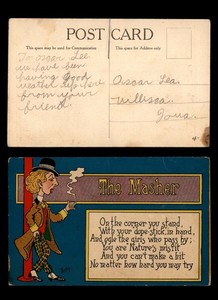 POST CARD
This space may be used for Communication.
This space for Address only
To oscar Lea
we have been
having good
weather up here
from your
friend
Oscar Lea
Villisca
Iowa
4
The Masher
On the corner you stand,
With your dope-stick in hand,
And ogle the girls who pass by;
You are Nature's misfit
And you can't make a hit
No matter how hard you may try